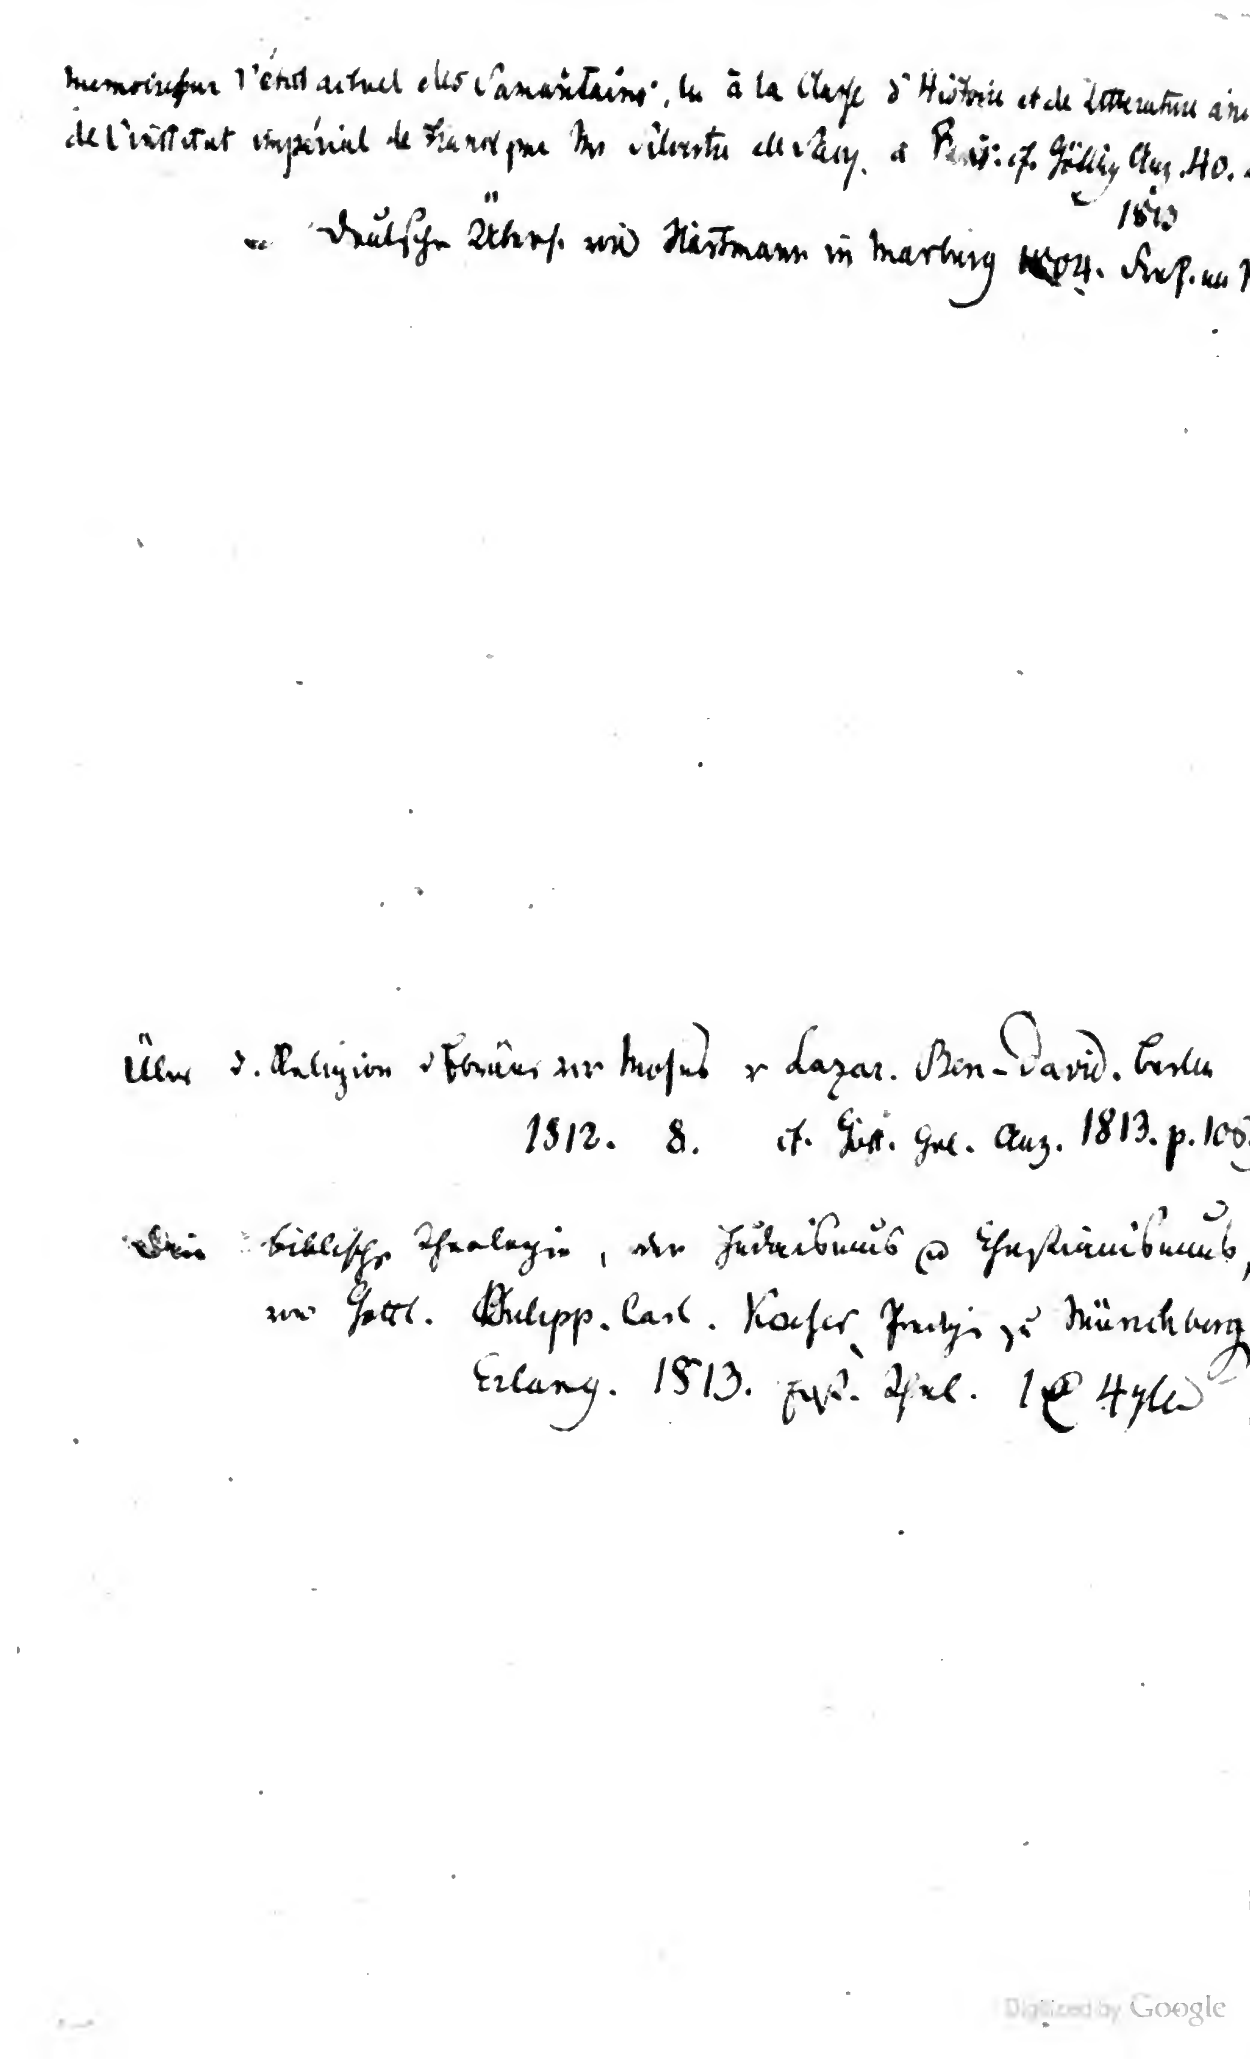 Memoire sur l'état actuel des Samaritains, lu à la Classe d'Histoire et de Litterature anc
de l'institut impérial de France par Mr Silvestre de Sacy. à Paris. cf. Götting Anz. 40.
1813
Deutsche Übers. von Hartmann in Marburg
Über d. Religion d Ebräer vor Moses v Lazar. Ben-David. Berlin
1812. 8. cf. Gött. Gel. Anz. 1813. p. 108
Die biblische Theologie, der Judaismus u Christianismus,
von Gottl. Philipp. Carl. Kaiser, Prediger zu Münchberg
Erlang. 1813. Theil. 1
Digitized by Google